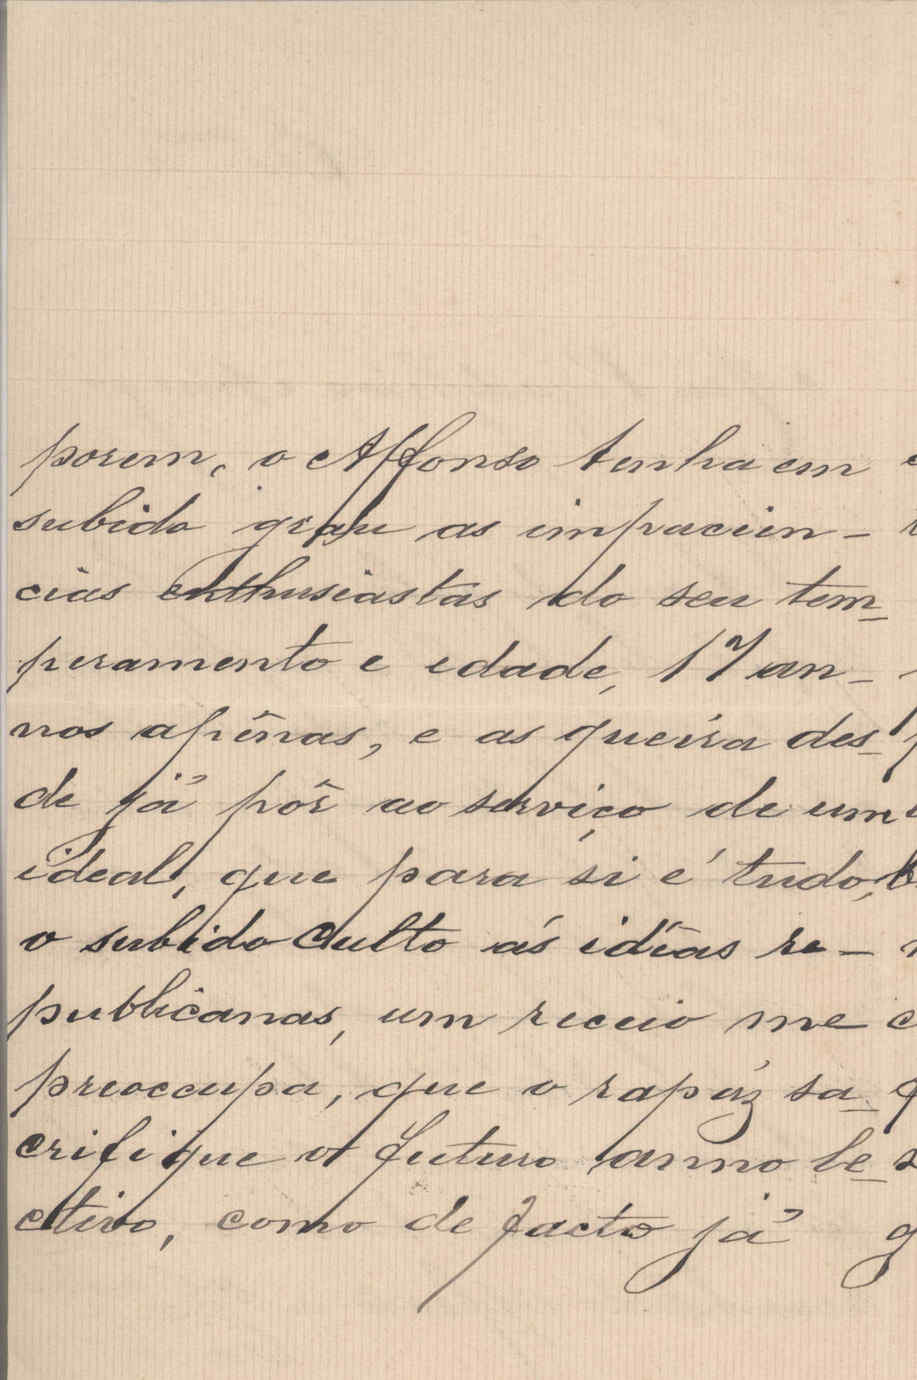 porem, o Affonso tenha em
subido grau as impacien-
cias enthusiastas do seu tem-
peramento e edade, 17 an-
nos apênas, e as queira des-
de já pôr ao serviço de um
ideal, que para si é tudo,
o subido culto ás idéas re-
publicanas, um receio me
preoccupa, que o rapáz sa-
crifique o futuro anno le-
ctivo, como de facto já